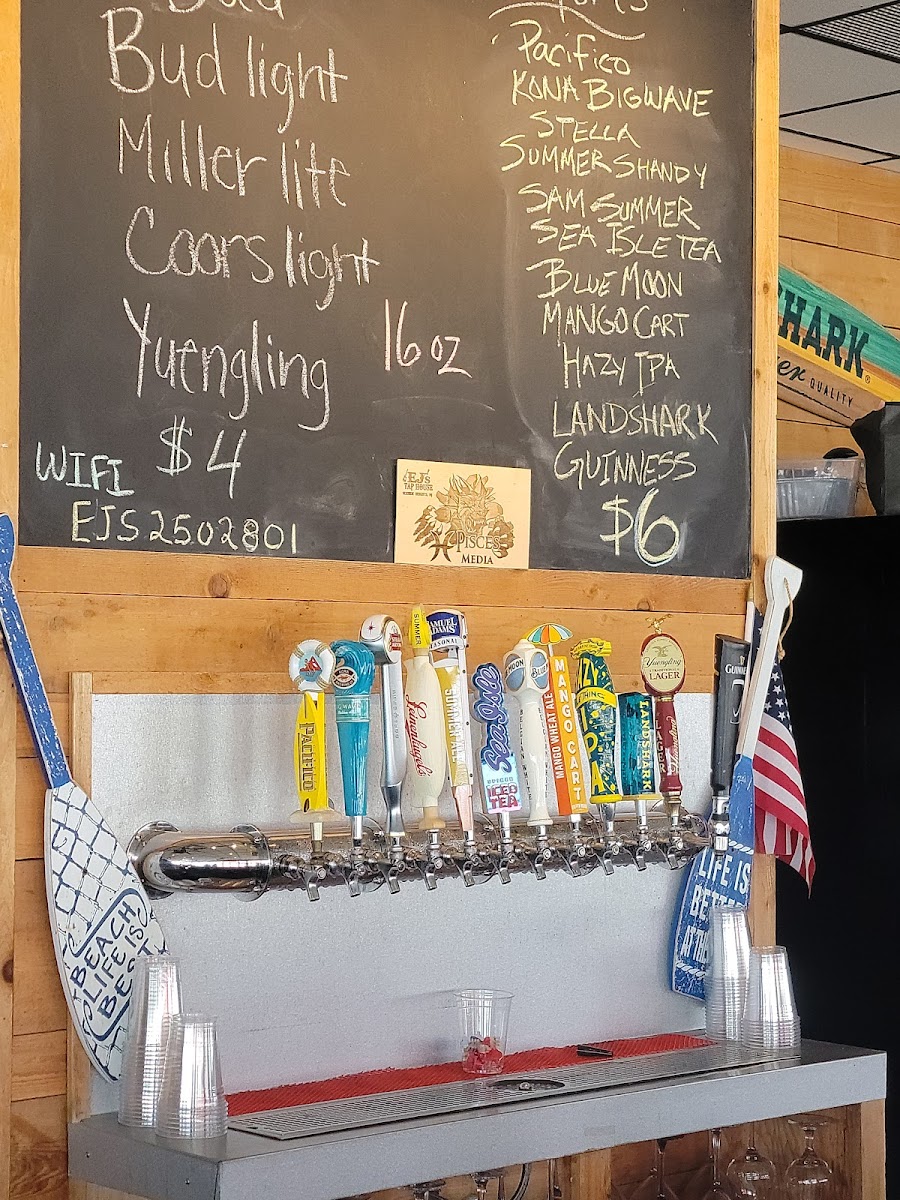 Bud
Bud light
Miller lite
Coors light
Yuengling
16 oz
$4
WIFI
EJS2502801
Pacifico
KONA BIGWAVE
STELLA
SUMMER SHANDY
SAM SUMMER
SEA ISLE TEA
BLUE MOON
MANGO CART
HAZY IPA
LANDSHARK
GUINNESS
$6
EJs
TAP HOUSE
PISCES
MEDIA
SHARK
QUALITY
PACIFICO
SUMMER
Leinenkugel's
SAMUEL
ADAMS
SEASONAL
SUMMER ALE
Sea Isle
SPIKED
ICED
TEA
BLUE
MOON
BELGIAN WHITE
MANGO CART
MANGO WHEAT ALE
LANDSHARK
Yuengling
LAGER
LAGER
GUINNESS
BEACH
LIFE IS
BEST
LIFE IS
BETTER
AT THE